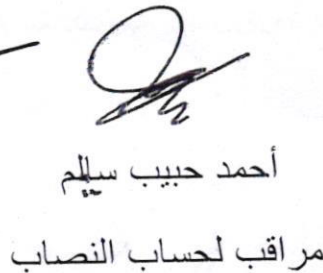 أحمد حبيب سالم
مراقب لحساب النصاب